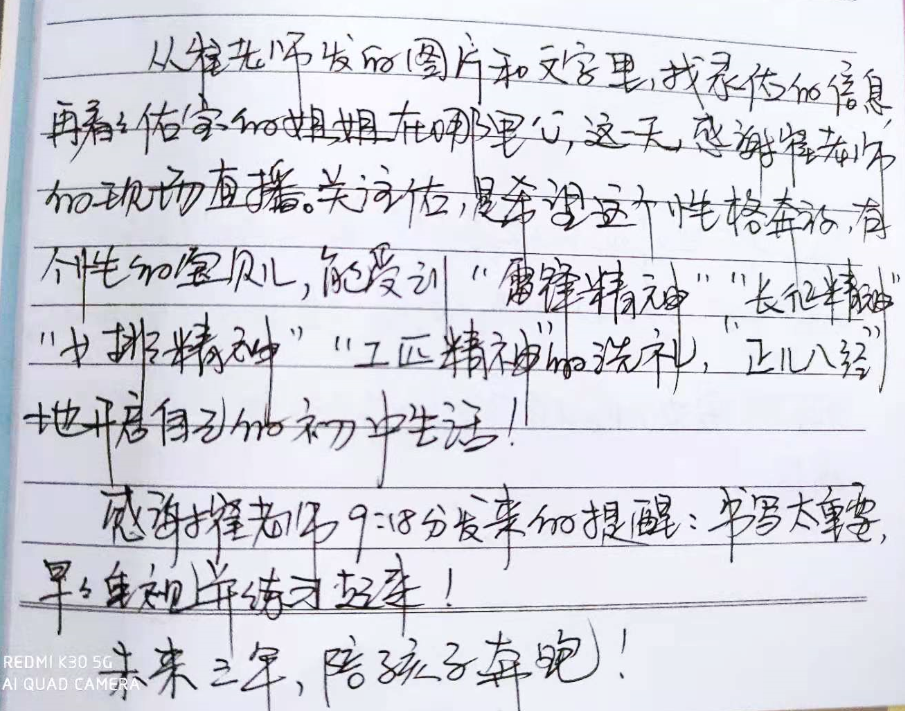 从崔老师发的图片和文字里,找录佑的信息,
再看看佑宝的姐姐在哪里,这一天,感谢崔老师
的现场直播。关注佑,是希望这个性格奔放,有
个性的宝贝儿,能受到“雷锋精神”“长征精神”
“女排精神”“工匠精神”的洗礼,“正儿八经”
地开启自己的初中生活!
感谢崔老师9:18分发来的提醒:书写太重要,
早早重视并练习起来!
未来三年,陪孩子奔跑!
REDMI K30 5G
AI QUAD CAMERA